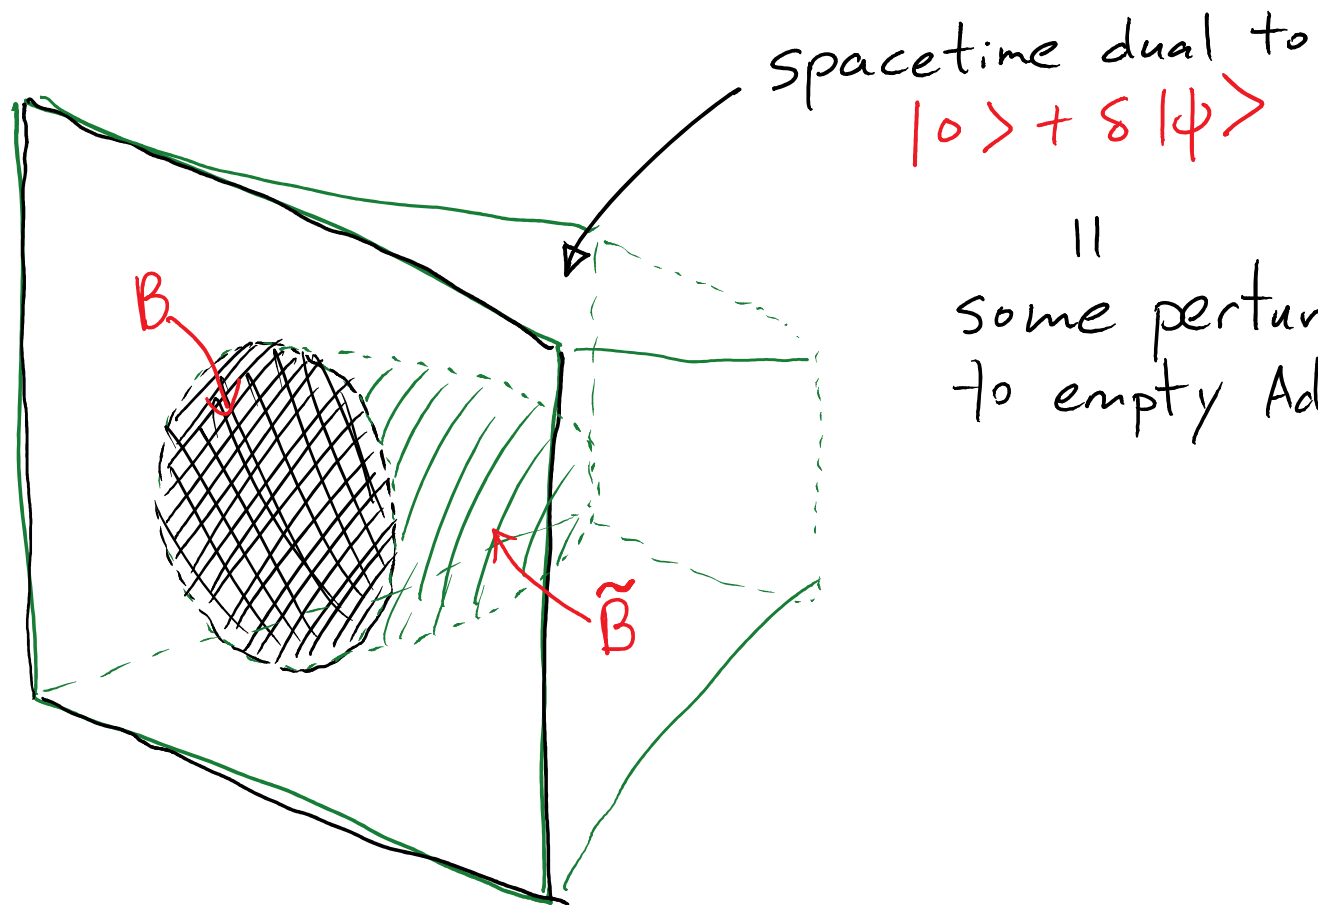 spacetime dual to
|0> + δ|ψ>
||
some pertur
to empty Ad
B
B̃